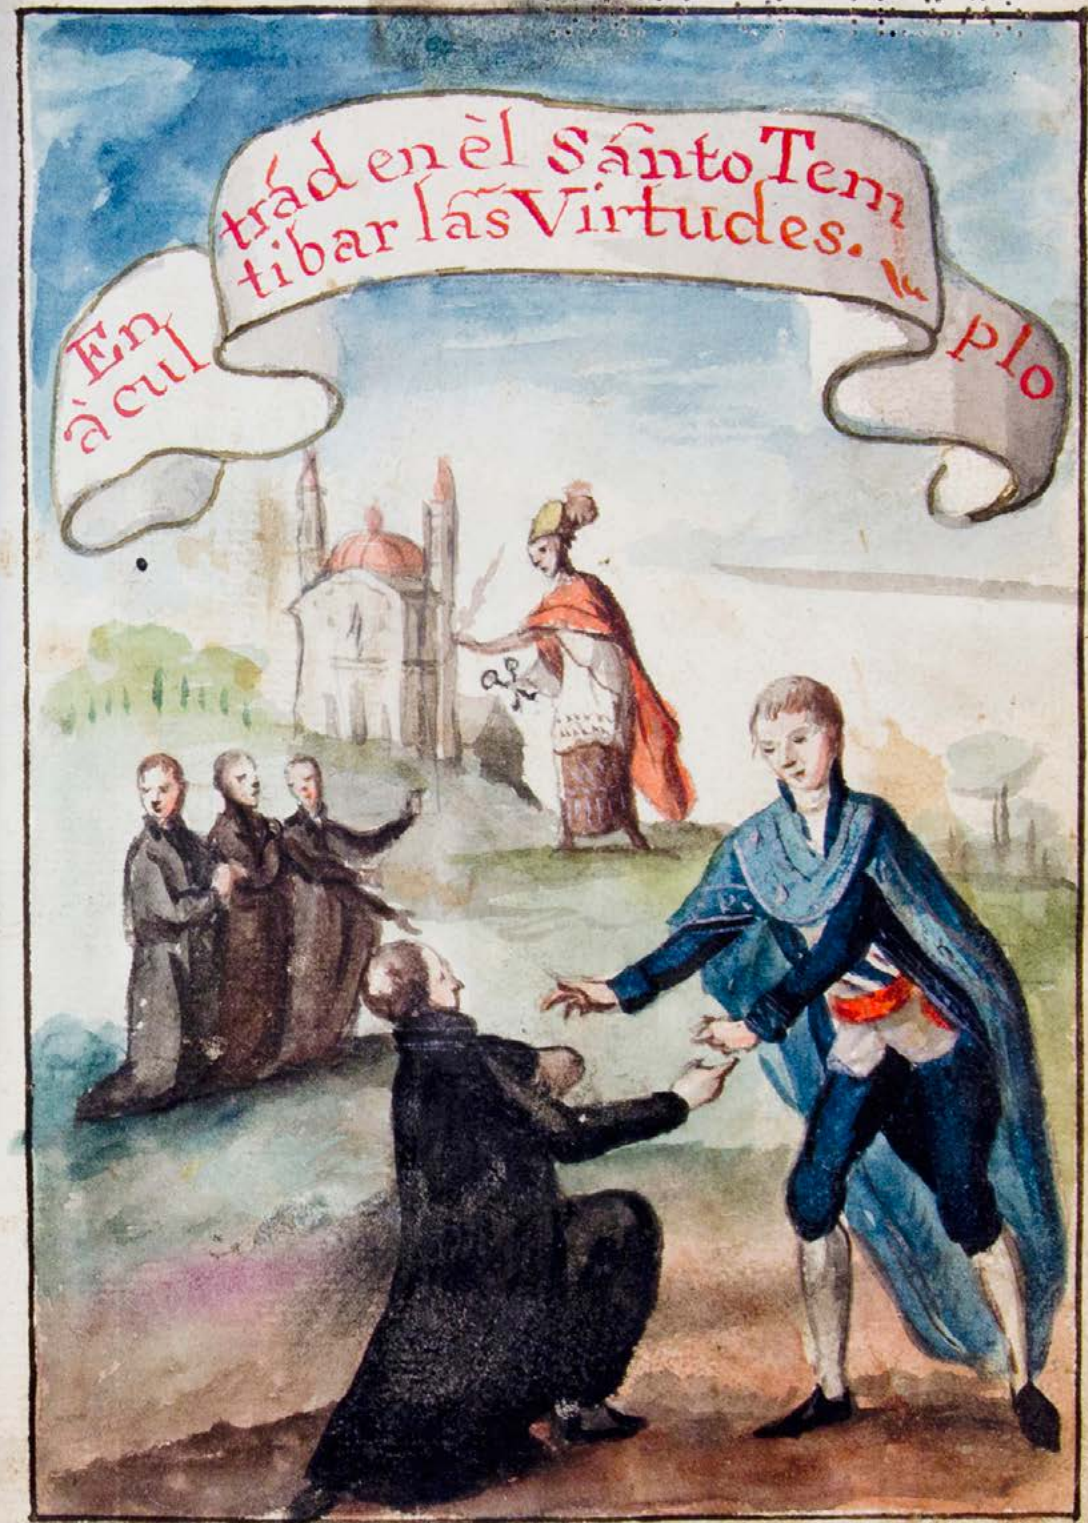 Entrád en èl Sãnto Templo
à cultibar lãs Virtudes.